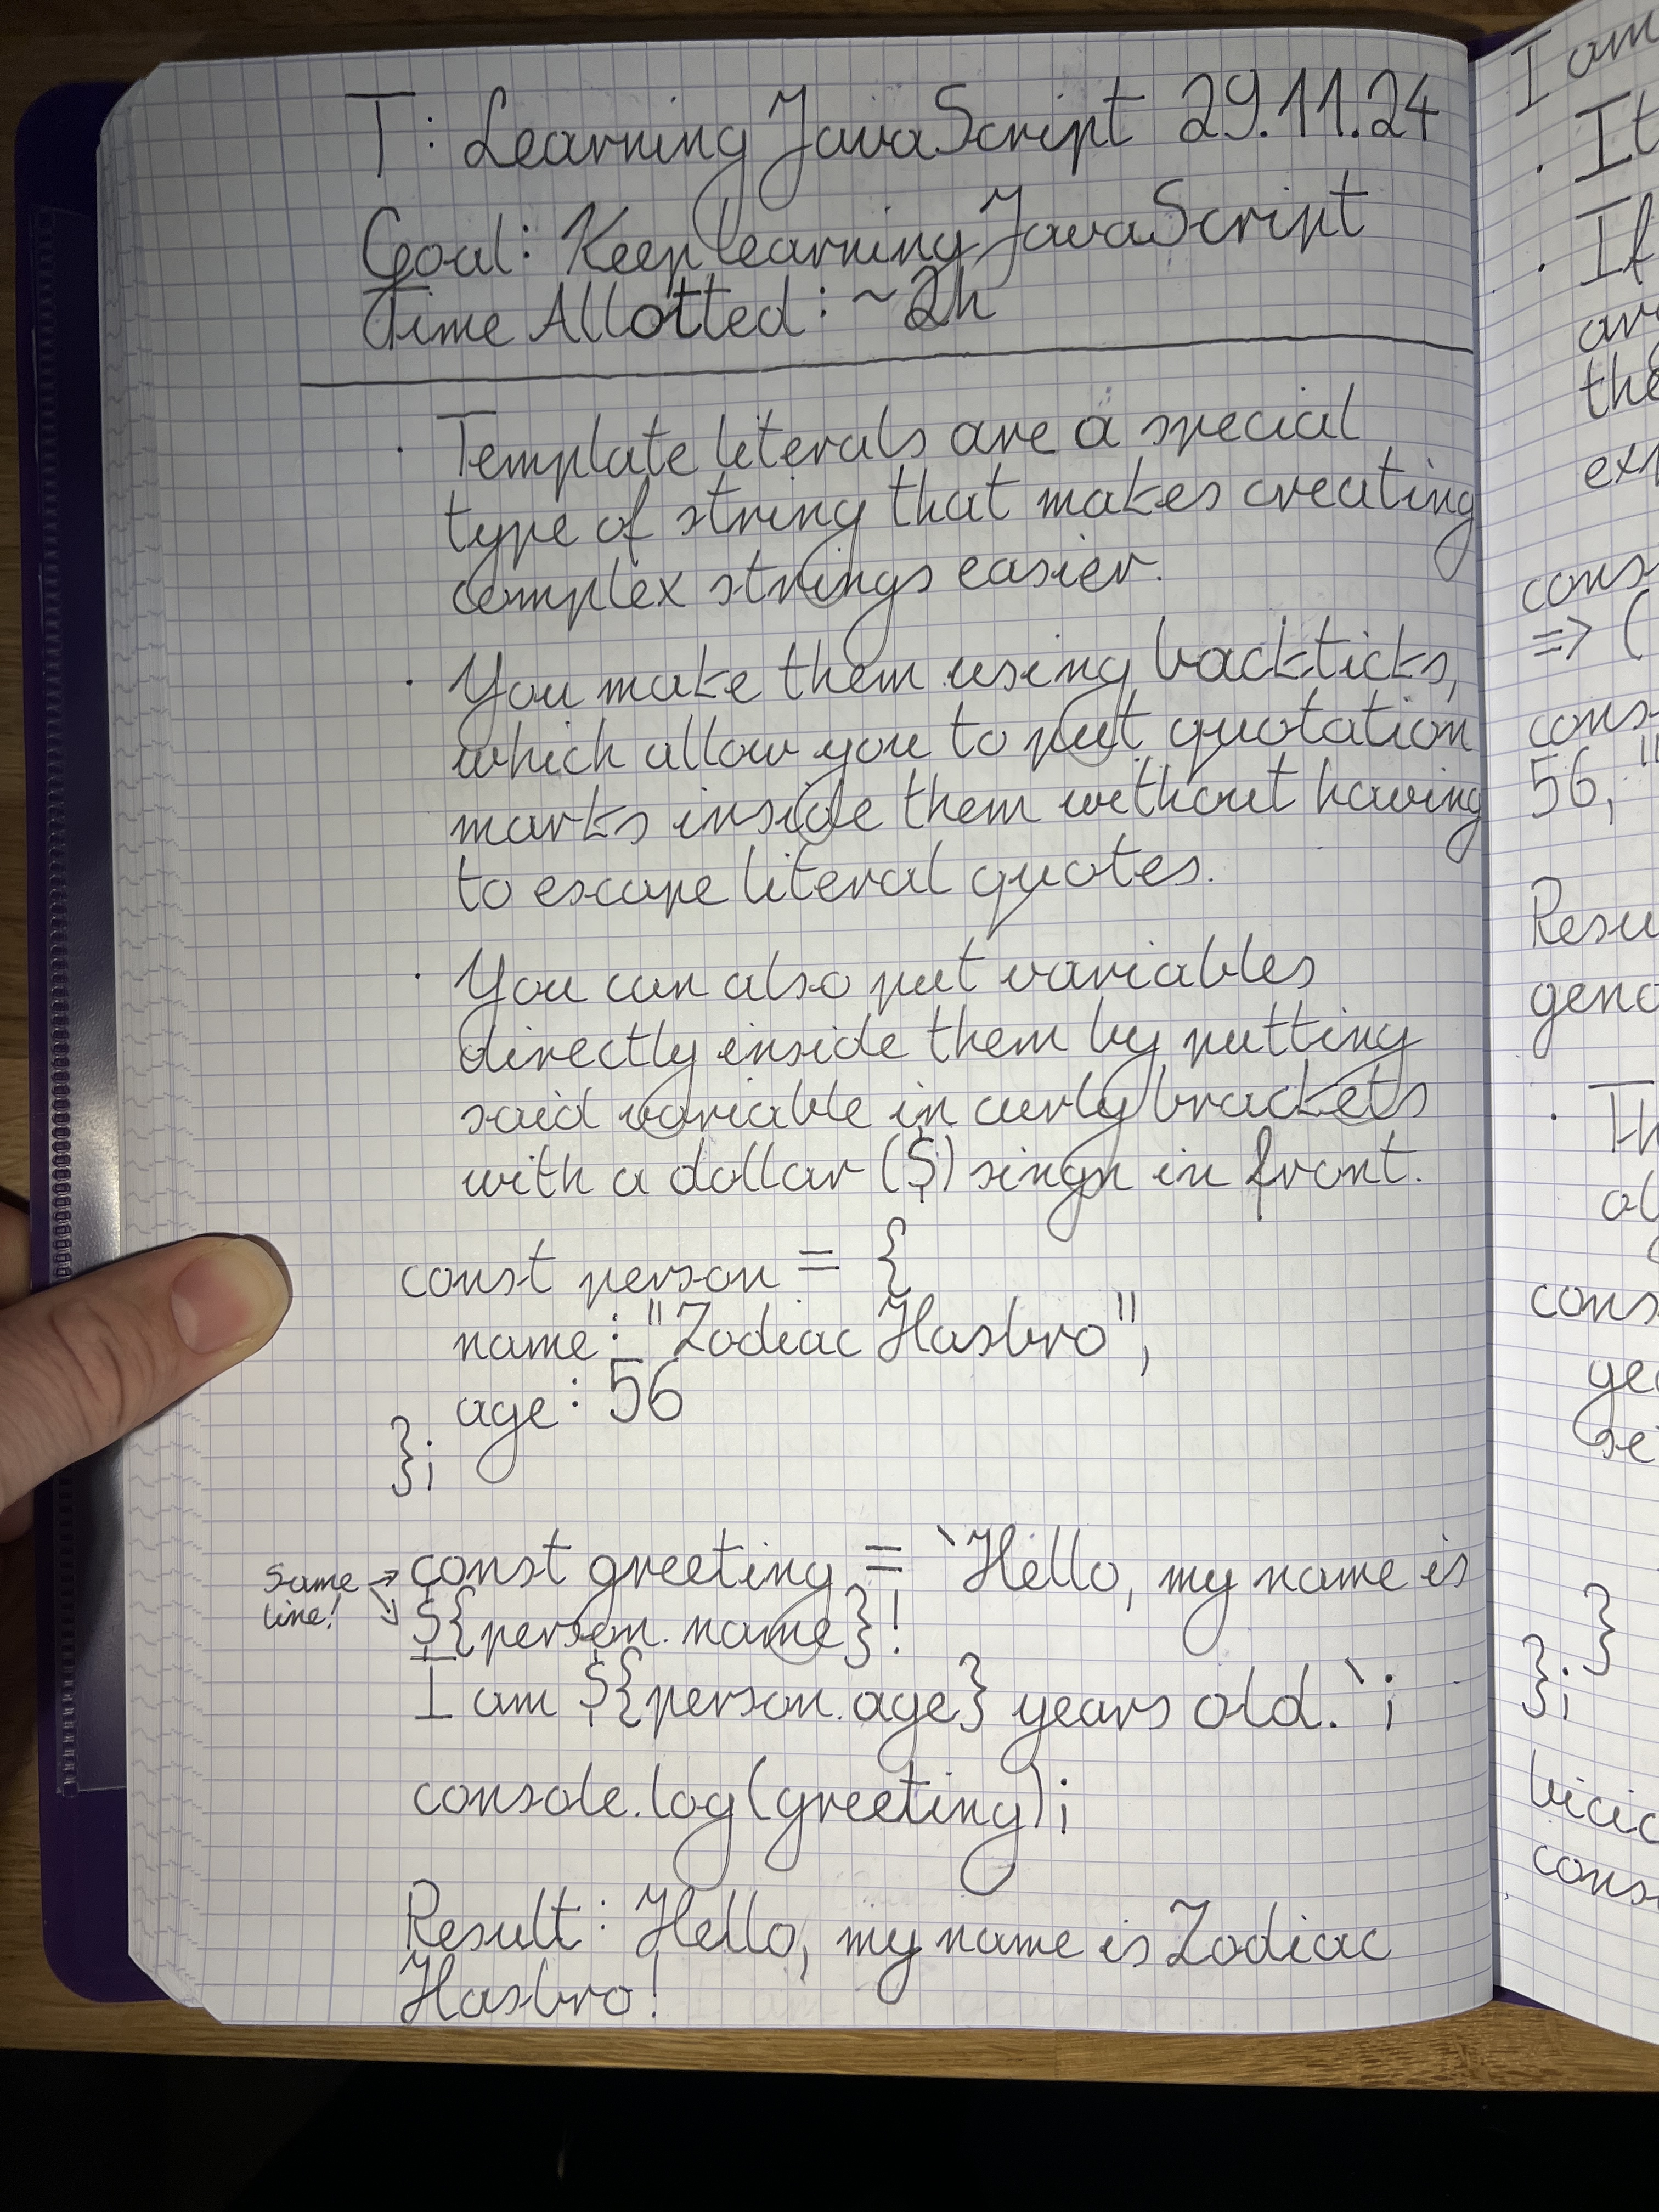 T: Learning JavaScript 29.11.24
Goal: Keep learning JavaScript
Time Allotted: ~2h
· Template literals are a special
type of string that makes creating
complex strings easier.
· You make them using backticks,
which allow you to put quotation
marks inside them without having
to escape literal quotes.
· You can also put variables
directly inside them by putting
said variable in curly brackets
with a dollar ($) singn in front.
const person = {
name: "Zodiac Hasbro",
age: 56
};
Same line!
const greeting = `Hello, my name is
${person.name}!
I am ${person.age} years old.`;
console.log(greeting);
Result: Hello, my name is Zodiac
Hasbro!
I am
· It
· If
the
cons
=> (
cons
56, "
Resu
geno
· Th
cons
}
};
cons